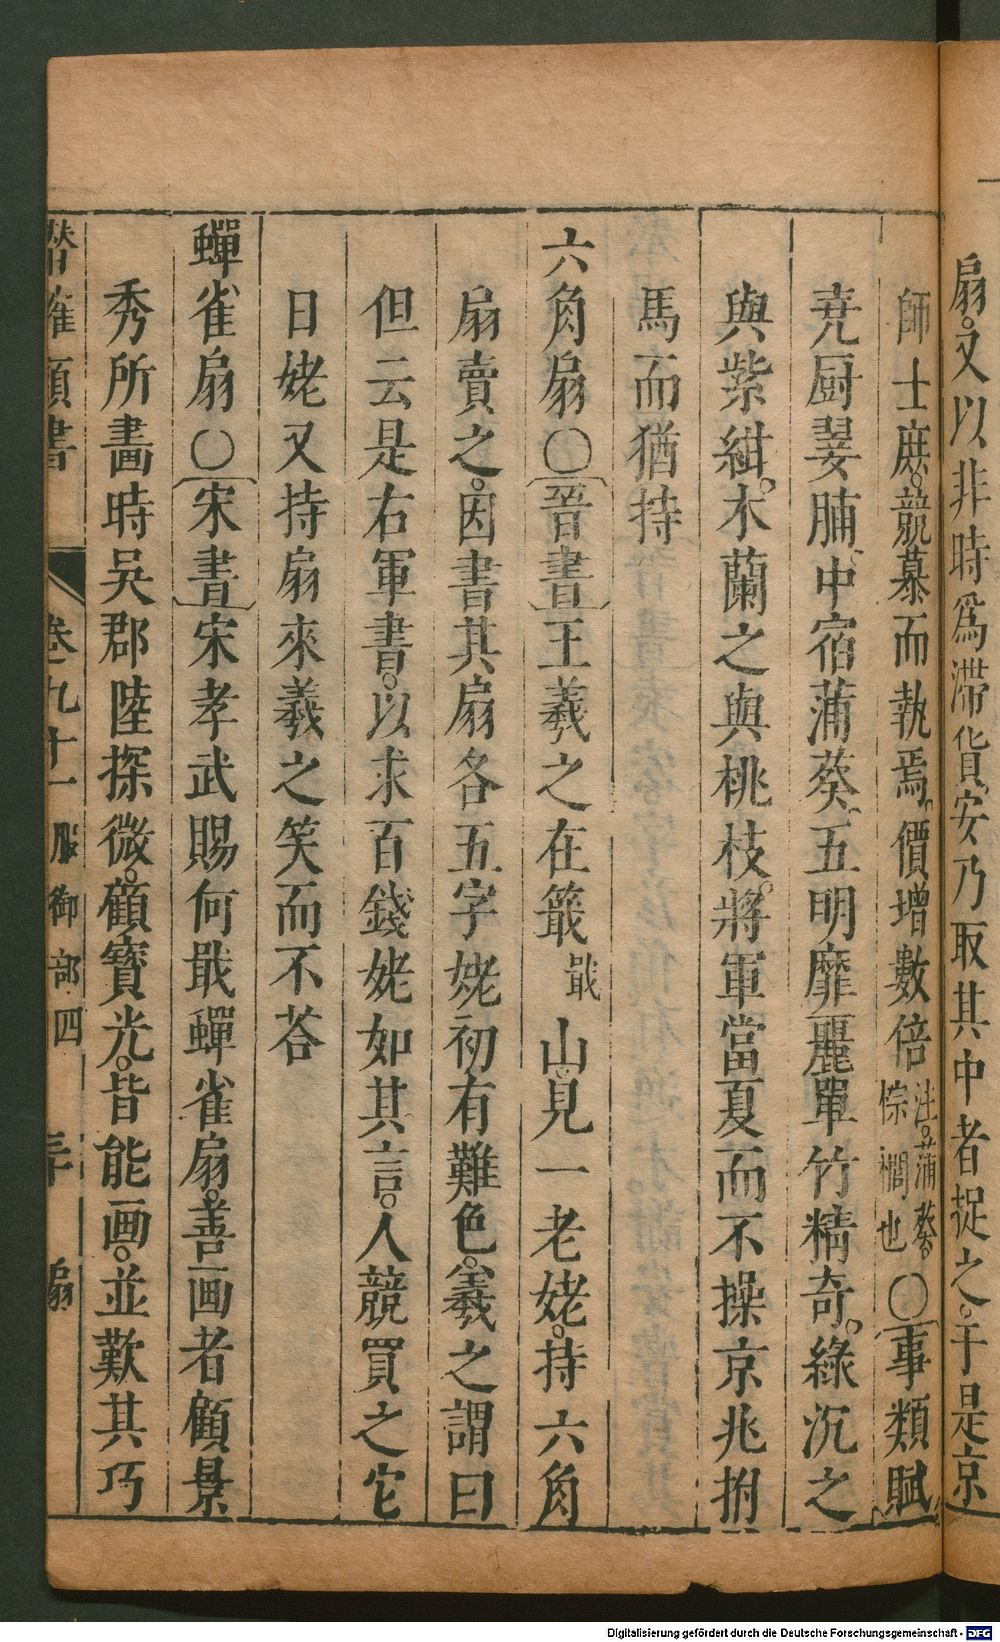 扇。又以非時爲滯貨。安乃取其中者捉之。于是京
師士庶。競慕而執焉。價增數倍注。蒲葵。㯶櫚也〇〔事類賦
尭厨翣脯。中宿蒲葵。五明靡麗單竹精奇。綠沉之
與紫紺。木蘭之與桃枝。將軍當夏而不操京兆拊
馬而猶持
六角扇〇〔晉書〕王羲之在蕺戢山。見一老姥。持六角
扇賣之。因書其扇各五字姥初有難色。羲之謂曰
但云是右軍書。以求百錢姥如其言。人競買之它
日姥又持扇來羲之笑而不荅
蟬雀扇〇〔宋書〕宋孝武賜何戢蟬雀扇。善画者顧景
秀所畵時吳郡陸探微。顧寳光。皆能画。並歎其巧
潛確類書 卷九十一 服御部四 扇
Digitalisierung gefördert durch die Deutsche Forschungsgemeinschaft - DFG